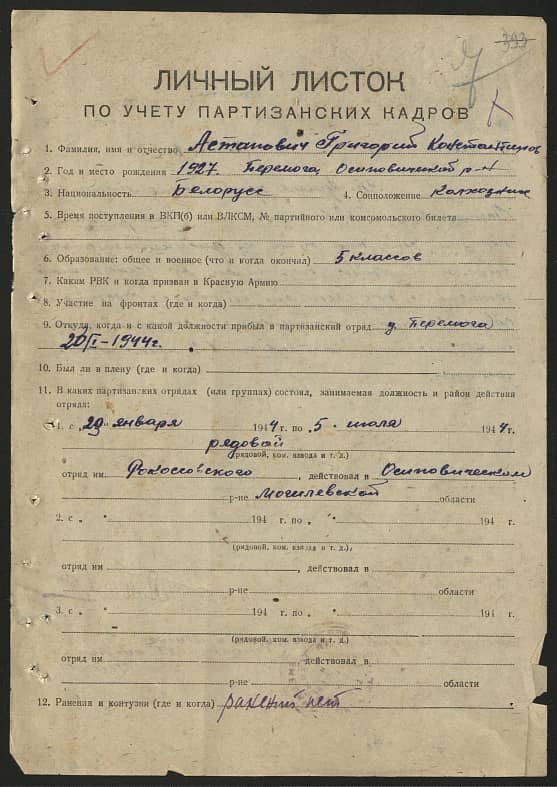 393
ЛИЧНЫЙ ЛИСТОК
ПО УЧЕТУ ПАРТИЗАНСКИХ КАДРОВ
1. Фамилия, имя и отчество Астапович Григорий Константинов
2. Год и место рождения 1927. Перемога, Осиповический р-н
3. Национальность Белорусс 4. Соцположение Колхозник
5. Время поступления в ВКП(б) или ВЛКСМ, № партийного или комсомольского билета
6. Образование: общее и военное (что и когда окончил) 5 классов
7. Каким РВК и когда призван в Красную Армию
8. Участие на фронтах (где и когда)
9. Откуда, когда и с какой должности прибыл в партизанский отряд д. Перемога
20/I-1944г.
10. Был ли в плену (где и когда)
11. В каких партизанских отрядах (или группах) состоял, занимаемая должность и район действия
отряда:
1. с "29" января 1944 г. по "5" июля 1944 г.
рядовой
(рядовой, ком. взвода и т. д.)
отряд им Рокоссовского, действовал в Осиповическом
р-не Могилевской области
2. с " " 194 г. по " " 194 г.
(рядовой, ком. взвода и т. д.),
отряд им , действовал в
р-не области
3. с " " 194 г. по " " 194 г.
(рядовой, ком. взвода и т. д.)
отряд им действовал в
р-не области
12. Ранения и контузии (где и когда) ранений нет